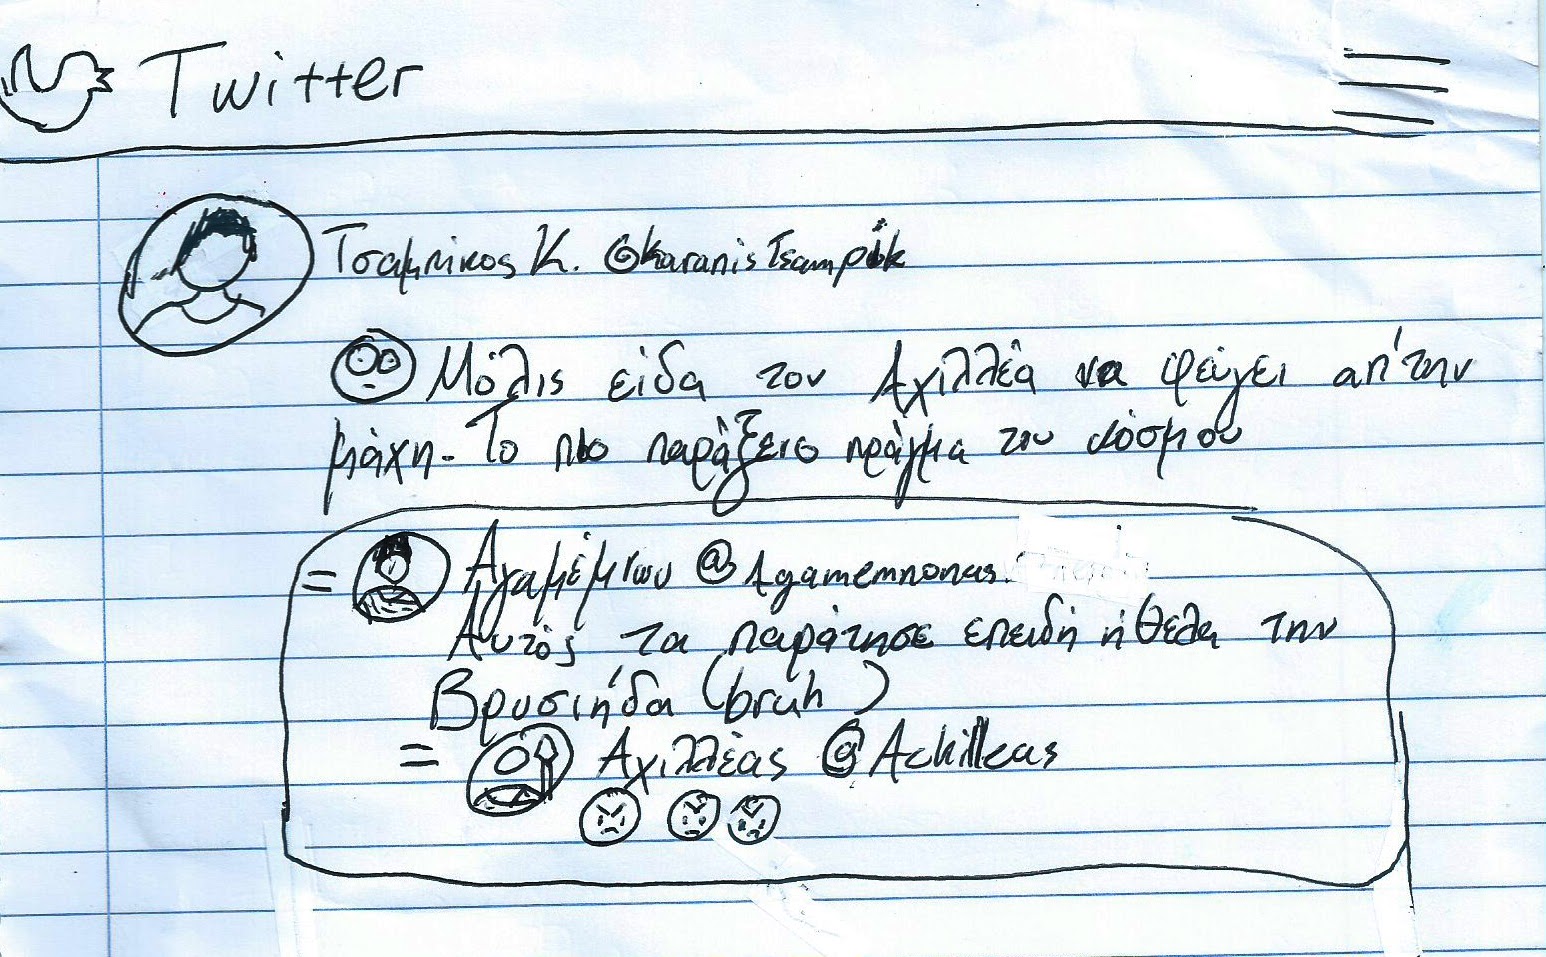 Twitter
Τσαμπίκος Κ. @KaranisTsampik
Μόλις είδα τον Αχιλλέα να φεύγει απ' την
μάχη. Το πιο παράξενο πράγμα του κόσμου
= Αγαμέμνων @Agamemnonas
Αυτός τα παράτησε επειδή ήθελα την
Βρυσιήδα (bruh)
= Αχιλλέας @Achilleas